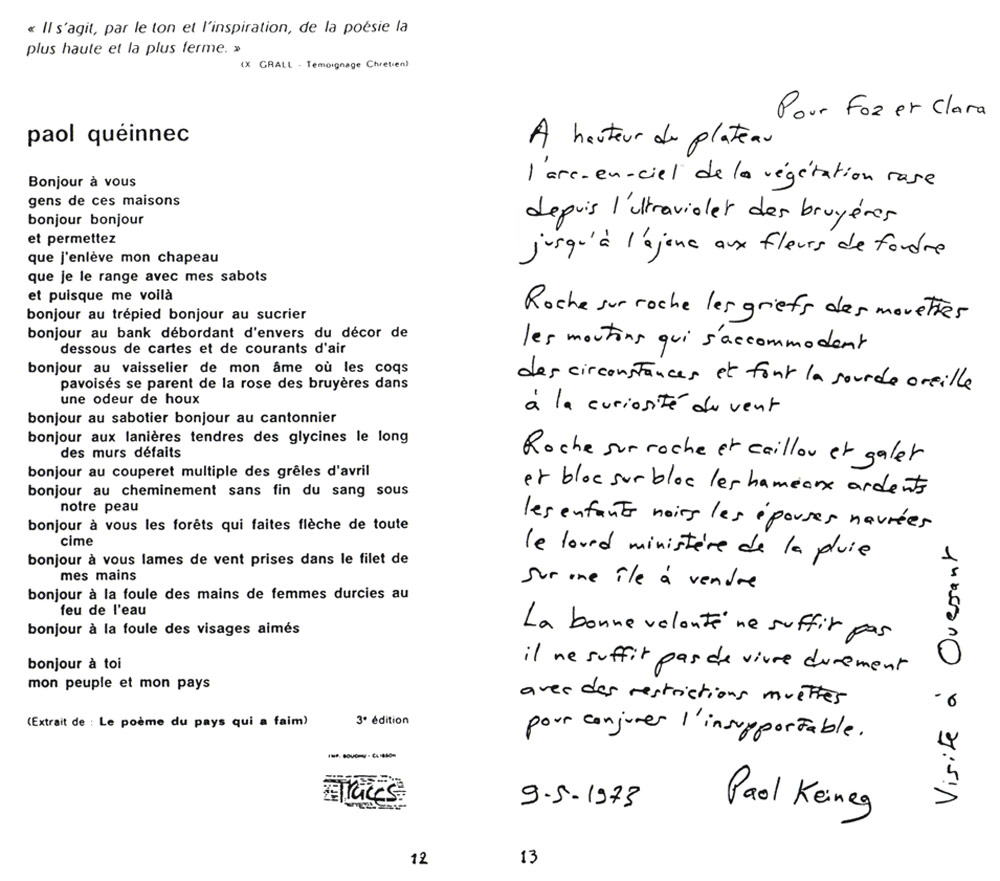 « Il s'agit, par le ton et l'inspiration, de la poésie la
plus haute et la plus ferme. »
(X GRALL - Temoignage Chretien)
paol quéinnec
Bonjour à vous
gens de ces maisons
bonjour bonjour
et permettez
que j'enlève mon chapeau
que je le range avec mes sabots
et puisque me voilà
bonjour au trépied bonjour au sucrier
bonjour au bank débordant d'envers du décor de
dessous de cartes et de courants d'air
bonjour au vaisselier de mon âme où les coqs
pavoisés se parent de la rose des bruyères dans
une odeur de houx
bonjour au sabotier bonjour au cantonnier
bonjour aux lanières tendres des glycines le long
des murs défaits
bonjour au couperet multiple des grêles d'avril
bonjour au cheminement sans fin du sang sous
notre peau
bonjour à vous les forêts qui faites flèche de toute
cime
bonjour à vous lames de vent prises dans le filet de
mes mains
bonjour à la foule des mains de femmes durcies au
feu de l'eau
bonjour à la foule des visages aimés
bonjour à toi
mon peuple et mon pays
(Extrait de : Le poème du pays qui a faim) 3e édition
IMP. BOUCHU - CLISSON
TRUCS
12
Pour Foz et Clara
A hauteur du plateau
l'arc-en-ciel de la végétation rase
depuis l'ultraviolet des bruyéres
jusqu'à l'ajonc aux fleurs de foudre
Roche sur roche les griefs des mouettes
les moutons qui s'accommodent
des circonstances et font la sourde oreille
à la curiosité du vent
Roche sur roche et caillou et galet
et bloc sur bloc les hameaux ardents
les enfants noirs les épouses navrées
le lourd ministére de la pluie
sur une île à vendre
La bonne volonté ne suffit pas
il ne suffit pas de vivre durement
avec des restrictions muettes
pour conjurer l'insupportable.
Visite à Ouessant
9-5-1973 Paol Keineg
13